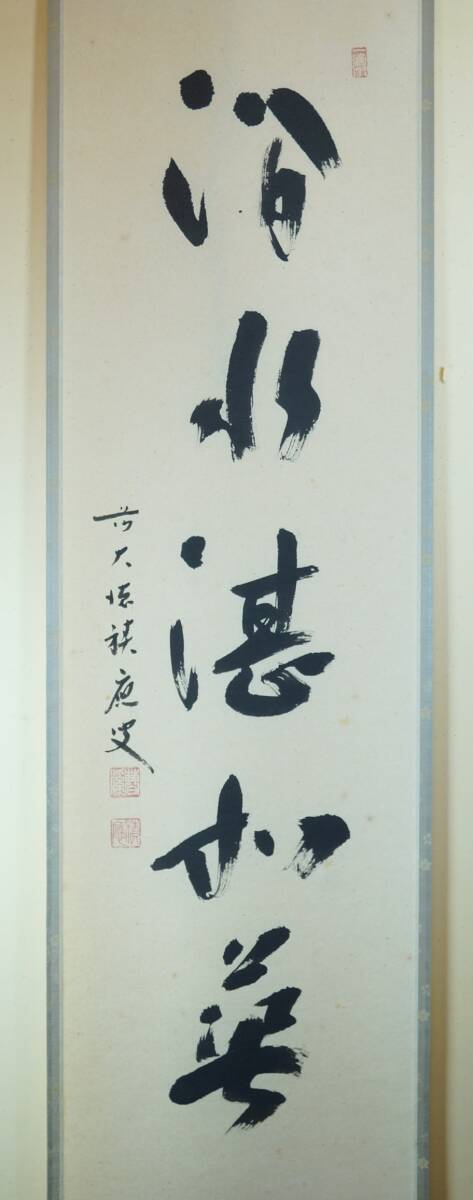 澗水湛如藍
前大徳積應叟